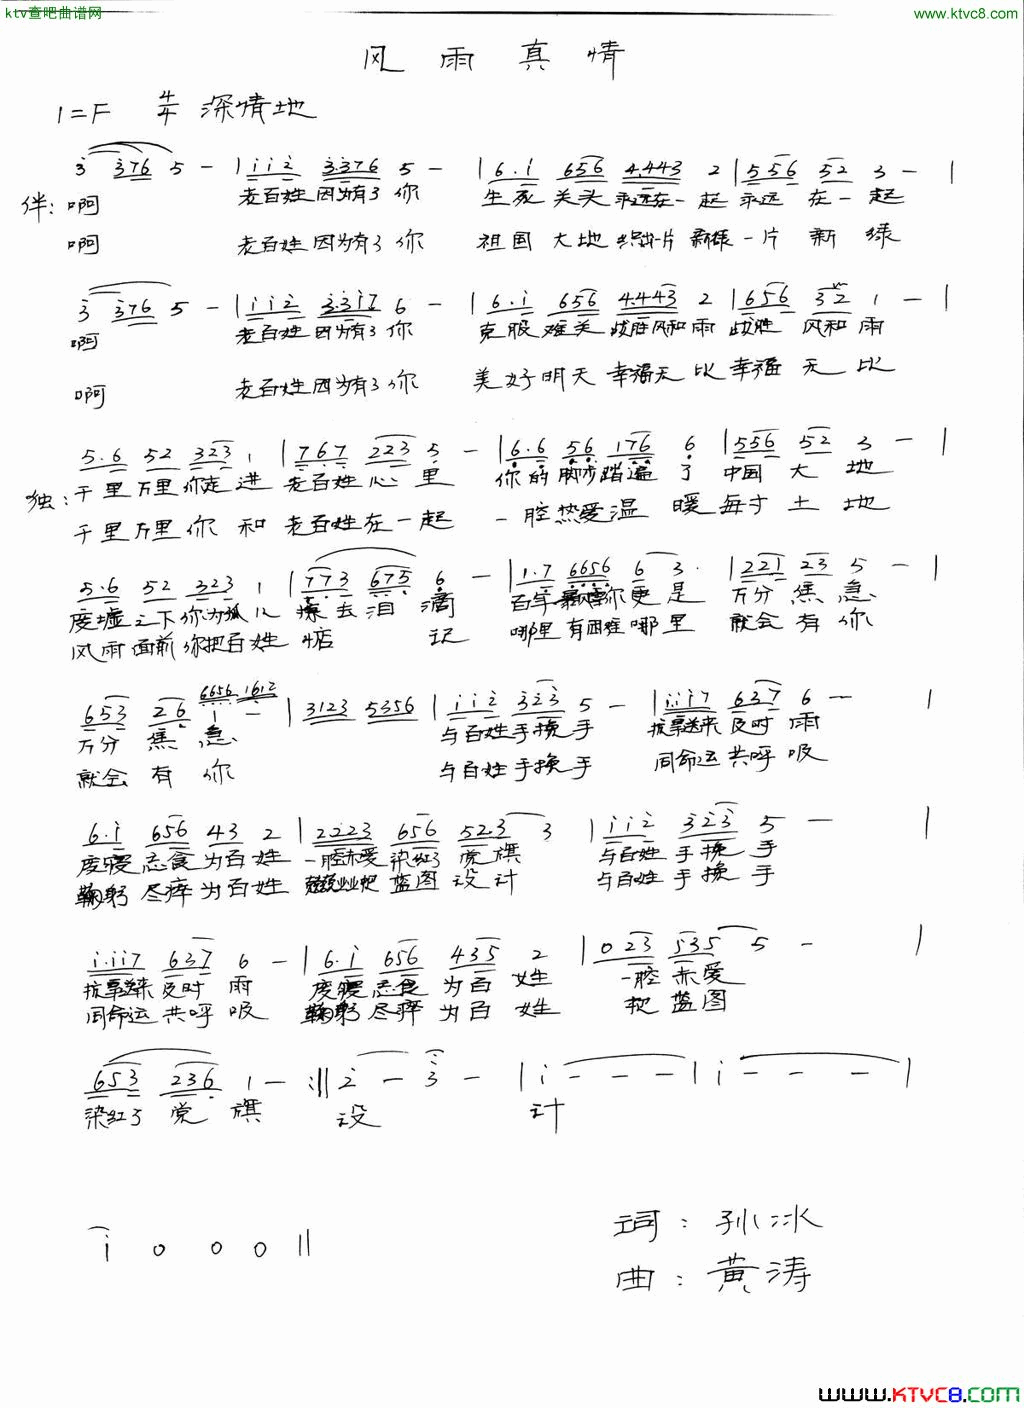 ktv查吧曲谱网
www.ktvc8.com
风雨真情
1=F 4/4 深情地
3 376 5 - | i i 2 3.376 5 - | 6.i 656 4.443 2 | 556 52 3 - |
伴: 啊 老百姓因为有了你 生死关头 永远在一起 永远在一起
啊 老百姓因为有了你 祖国大地 一片新绿一片新绿
3 376 5 - | i i 2 3.3i7 6 - | 6.i 656 4.443 2 | 656 32 1 - |
啊 老百姓因为有了你 克服难关战胜风和雨战胜风和雨
啊 老百姓因为有了你 美好明天幸福无比幸福无比
5.6 52 323 1 | 767 223 5 - | 6.6 56 176 6 | 556 52 3 - |
独: 千里万里你走进老百姓心里 你的脚步踏遍了中国大地
千里万里你和老百姓在一起 一腔热爱温暖每寸土地
5.6 52 323 1 | 773 675 6 - | 1.7 6656 6 3. | 221 23 5 - |
废墟之下你为孤儿擦去泪滴 你更是万分焦急
风雨面前你把百姓惦记 哪里有困难哪里就会有你
6656 1612
653 26 1 - | 3123 5356 | i i 2 323 5 - | i.i i7 637 6 - |
万分焦急 与百姓手挽手 抗旱送来及时雨
就会有你 与百姓手挽手 同命运共呼吸
6.i 656 43 2 | 2223 656 523 3 | i i 2 323 5 - |
废寝忘食为百姓 一腔赤爱染红了党旗 与百姓手挽手
鞠躬尽瘁为百姓 把蓝图设计 与百姓手挽手
i.i i7 637 6 - | 6.i 656 435 2 | 0 23 535 5 - |
抗旱送来及时雨 废寝忘食为百姓 一腔赤爱
同命运共呼吸 鞠躬尽瘁为百姓 把蓝图
653 236 1 - :|| 2 - 3 - | i - - - | i - - - |
染红了党旗 设 计
i 0 0 0 ||
词：孙冰
曲：黄涛
www.KTVC8.com